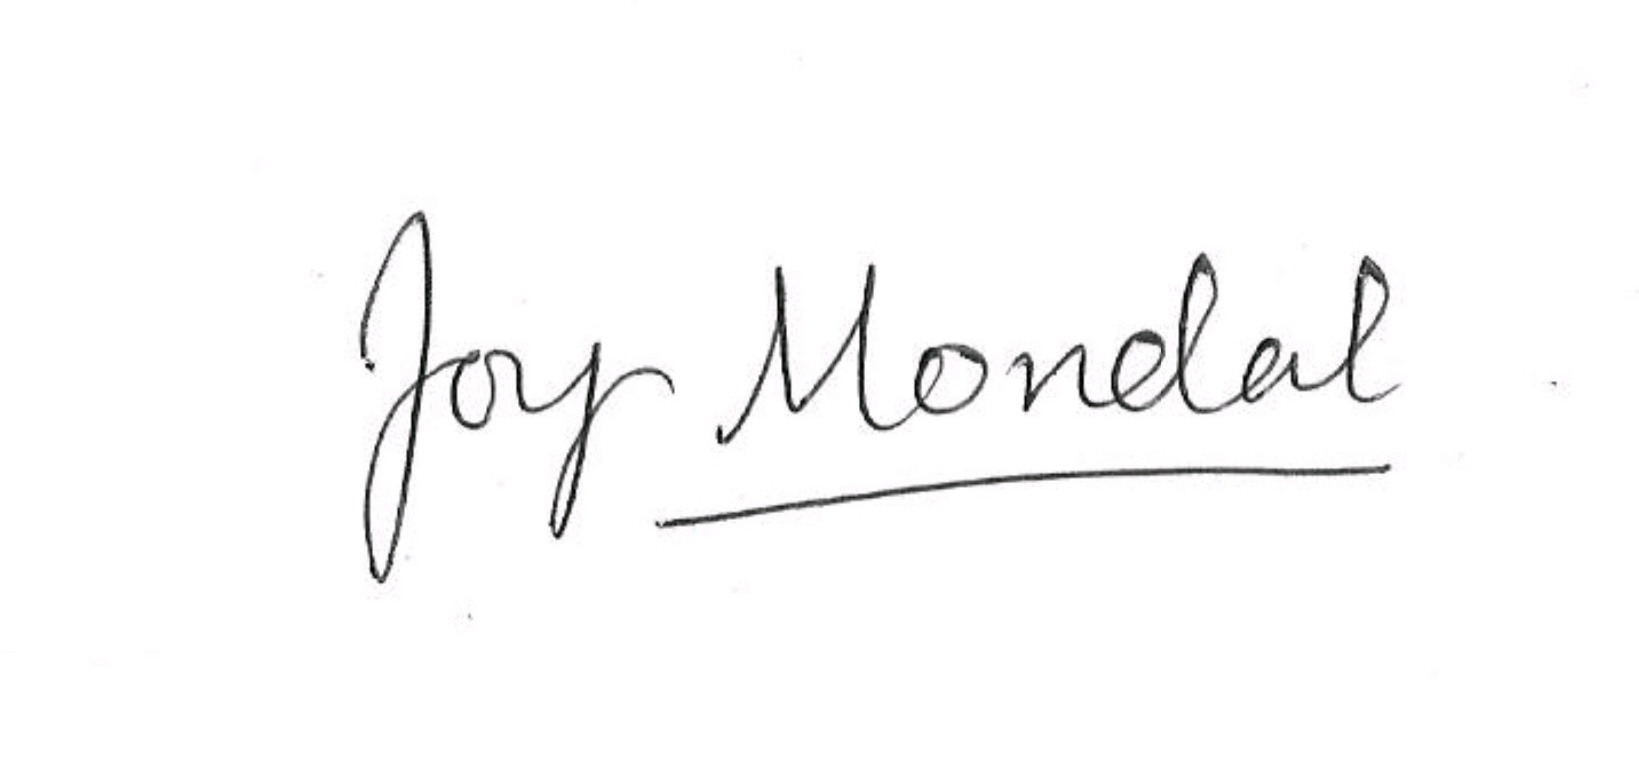 Joy Mondal